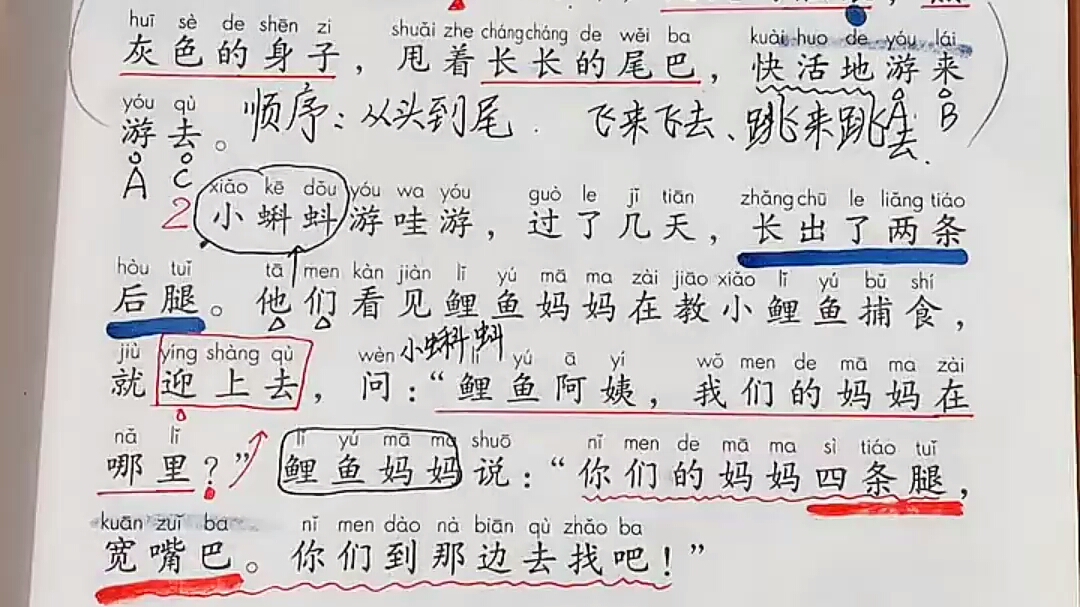 huī sè de shēn zi shuǎi zhe cháng cháng de wěi ba kuài huo de yóu lái
灰色的身子，甩着长长的尾巴，快活地游来
yóu qù
游去。顺序：从头到尾. 飞来飞去、跳来跳去.
A B
A C
2
xiǎo kē dǒu yóu wa yóu guò le jǐ tiān zhǎng chū le liǎng tiáo
小蝌蚪游哇游，过了几天，长出了两条
hòu tuǐ tā men kàn jiàn lǐ yú mā ma zài jiāo xiǎo lǐ yú bǔ shí
后腿。他们看见鲤鱼妈妈在教小鲤鱼捕食，
小蝌蚪
jiù yíng shàng qù wèn lǐ yú ā yí wǒ men de mā ma zài
就迎上去，问：“鲤鱼阿姨，我们的妈妈在
nǎ lǐ lǐ yú mā ma shuō nǐ men de mā ma sì tiáo tuǐ
哪里？”鲤鱼妈妈说：“你们的妈妈四条腿，
kuān zuǐ ba nǐ men dào nà biān qù zhǎo ba
宽嘴巴。你们到那边去找吧！”